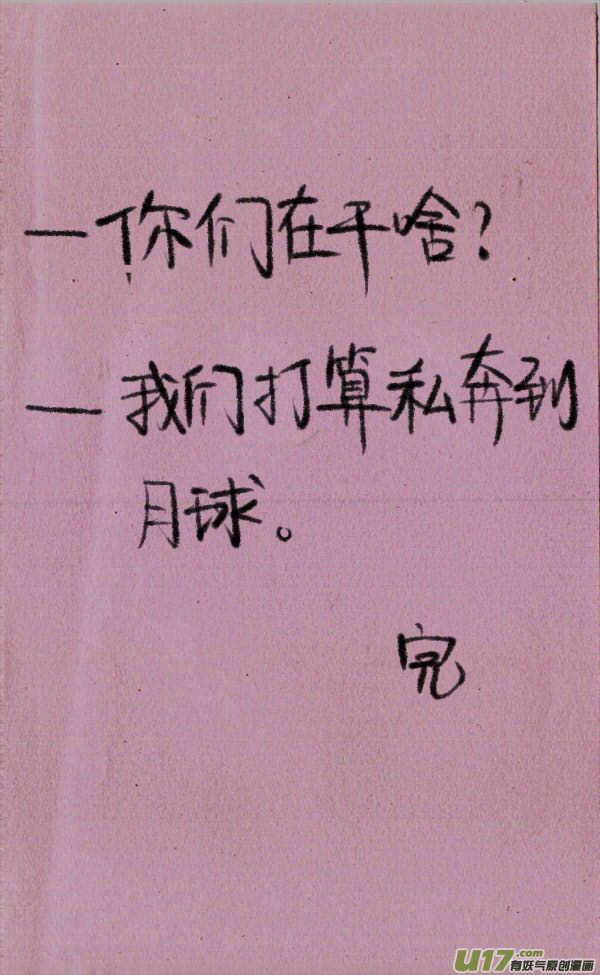 —你们在干啥？
—我们打算私奔到
月球。
完
U17.com
有妖气原创漫画